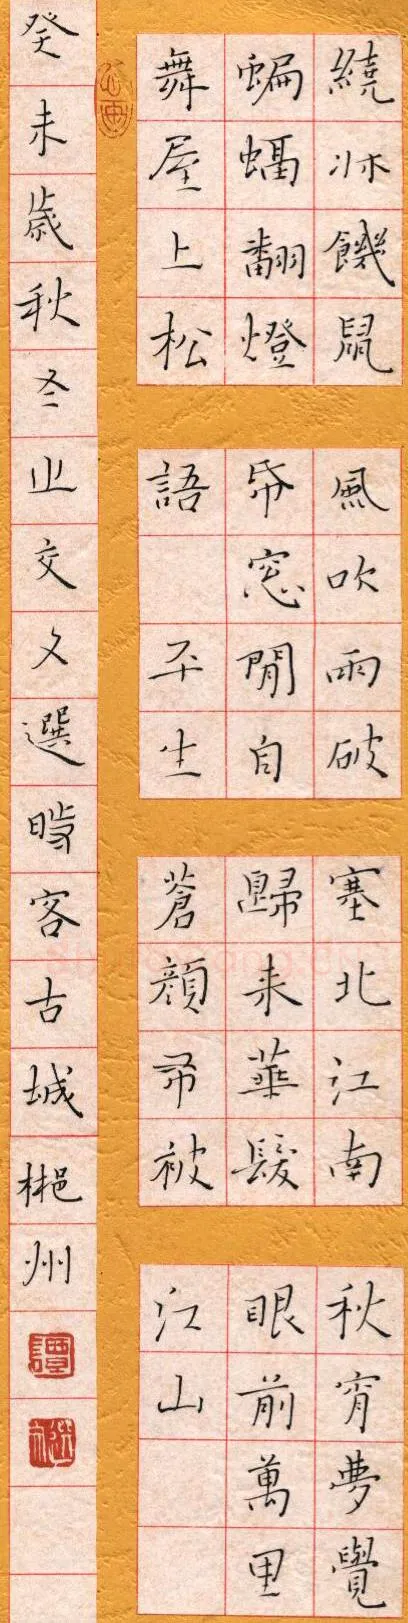 繞牀饑鼠
蝙蝠翻燈
舞屋上松
風吹雨破
帋窓間自
語 平生
塞北江南
歸來華髮
蒼顏布被
秋宵夢覺
眼前萬里
江山
癸未歲秋冬之交文選時客古城郴州
譚